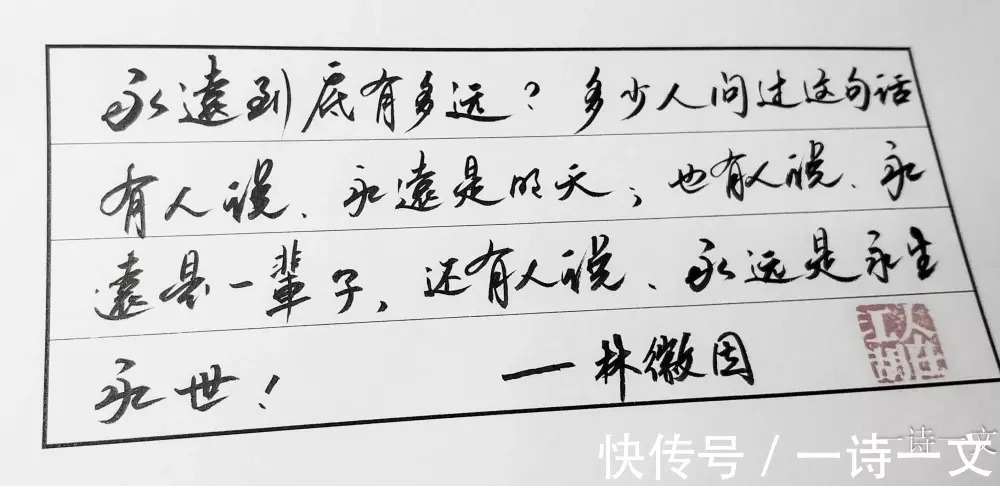 永遠到底有多远？多少人问过这句话
有人说、永遠是明天；也有人说、永
遠是一輩子，还有人说、永远是永生
永世！
——林徽因
一诗一文
快传号／一诗一文